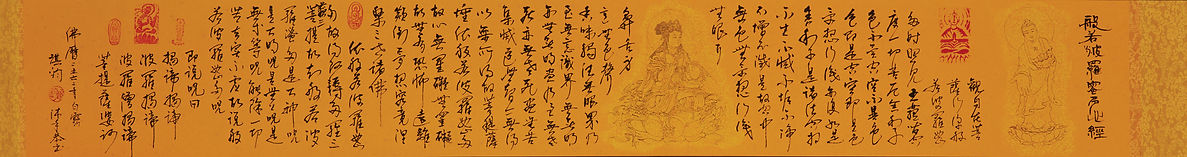 般若波羅密多心經
觀自在菩
薩行深般
若波羅密
多時照見五蘊皆空
度一切苦厄舍利子
色不異空空不異色
色即是空空即是色
受想行識亦復如是
舍利子是諸法空相
不生不滅不垢不淨
不增不減是故空中
無色無受想行識
無眼耳
鼻舌身
意無色聲
香味觸法無眼界乃
至無意識界無無明
亦無無明盡乃至無老
死亦無老死盡無苦
集滅道無智亦無得
以無所得故菩提薩
埵依般若波羅密多
故心無罣礙無罣礙
故無有恐怖遠離
顛倒夢想究竟涅
槃三世諸佛
依般若波羅密
多故得阿耨多羅三
藐三菩提故知般若波
羅密多是大神咒
是大明咒是無上咒是
無等等咒能除一切
苦真實不虛故說般
若波羅密多咒
即說咒曰
揭諦揭諦
波羅揭諦
波羅僧揭諦
菩提薩婆訶
佛曆